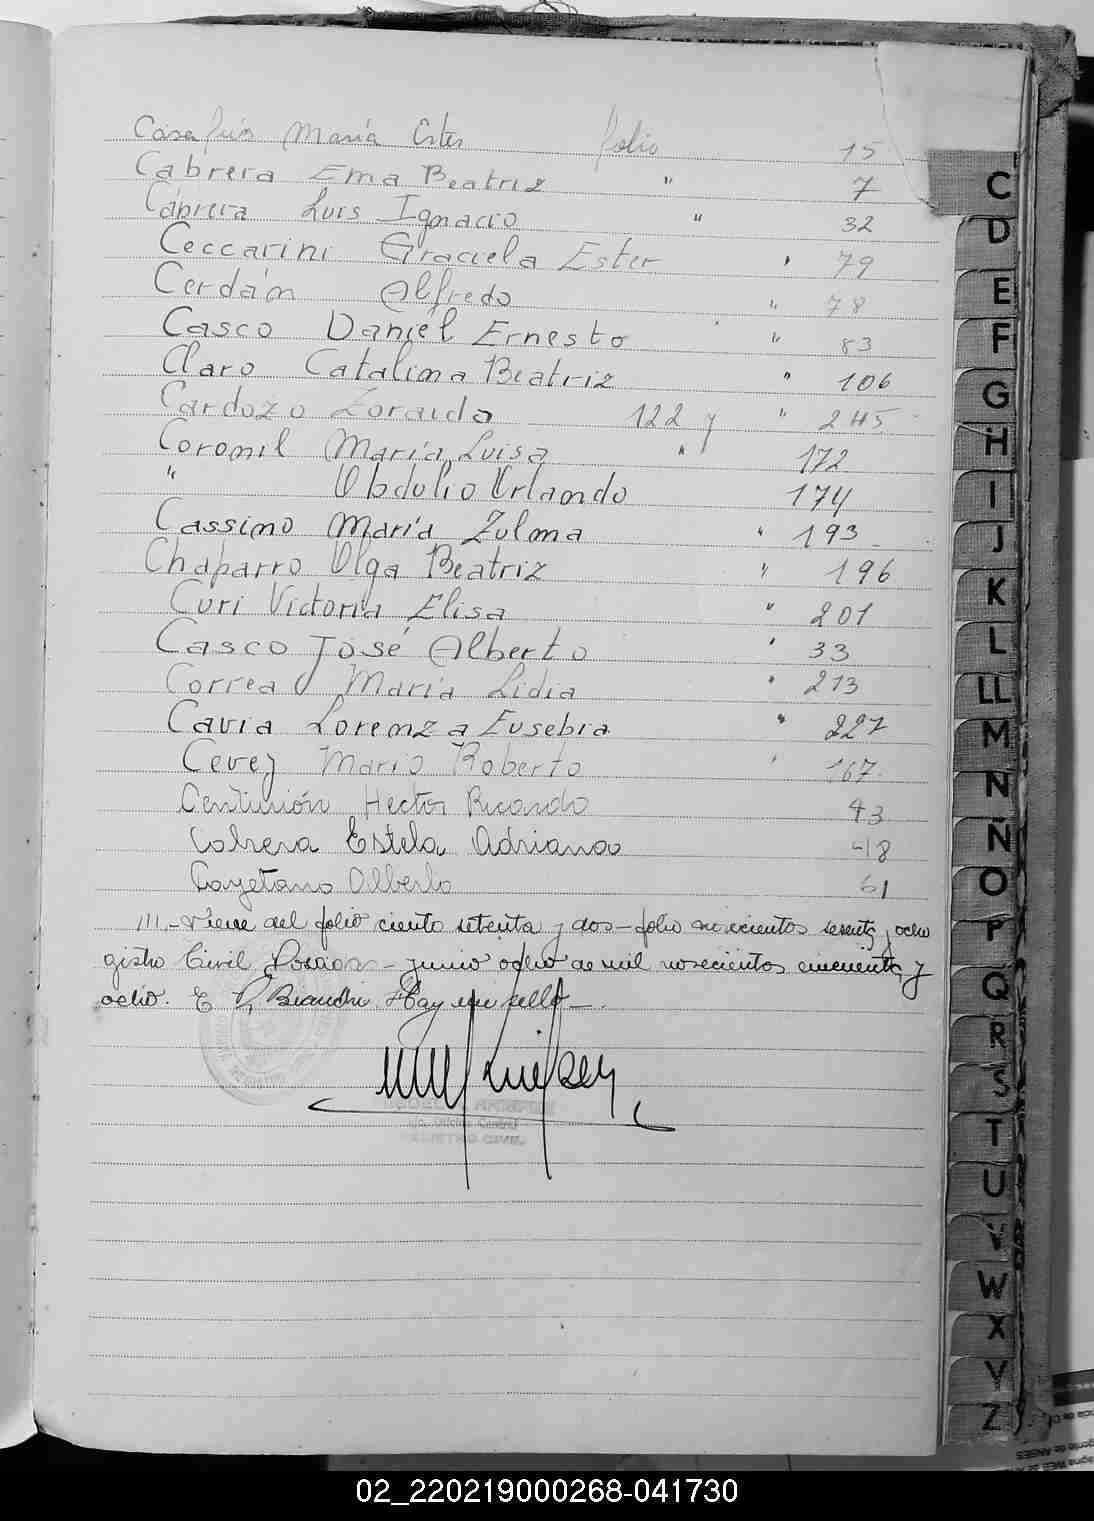 María Ester folio 15
Cabrera Ema Beatriz " 7
Cabrera Luis Ignacio " 32
Ceccarini Graciela Ester " 79
Cerdán Alfredo " 78
Casco Daniel Ernesto " 83
Claro Catalina Beatriz " 106
Cardozo Zoraida 122 y " 245
Coronil María Luisa " 172
" Obdulio Orlando 174
Cassino María Zulma " 193
Chaparro Olga Beatriz " 196
Curi Victoria Elisa " 201
Casco José Alberto " 33
Correa María Lidia " 213
Cavia Lorenza Eusebia " 227
Cevey Mario Roberto " 167
Centurión Hector Ricardo 43
Cabrera Estela Adriana 48
Cayetano Alberto 61
///.-Viene del folio ciento setenta y dos-folio novecientos sesenta y ocho
gistro Civil - junio ocho de mil novecientos cincuenta y
ocho. E Bianchi. Hay un sello-.
REGISTRO CIVIL
C
D
E
F
G
H
I
J
K
L
LL
M
N
Ñ
O
P
Q
R
S
T
U
V
W
X
Y
Z
02_220219000268-041730